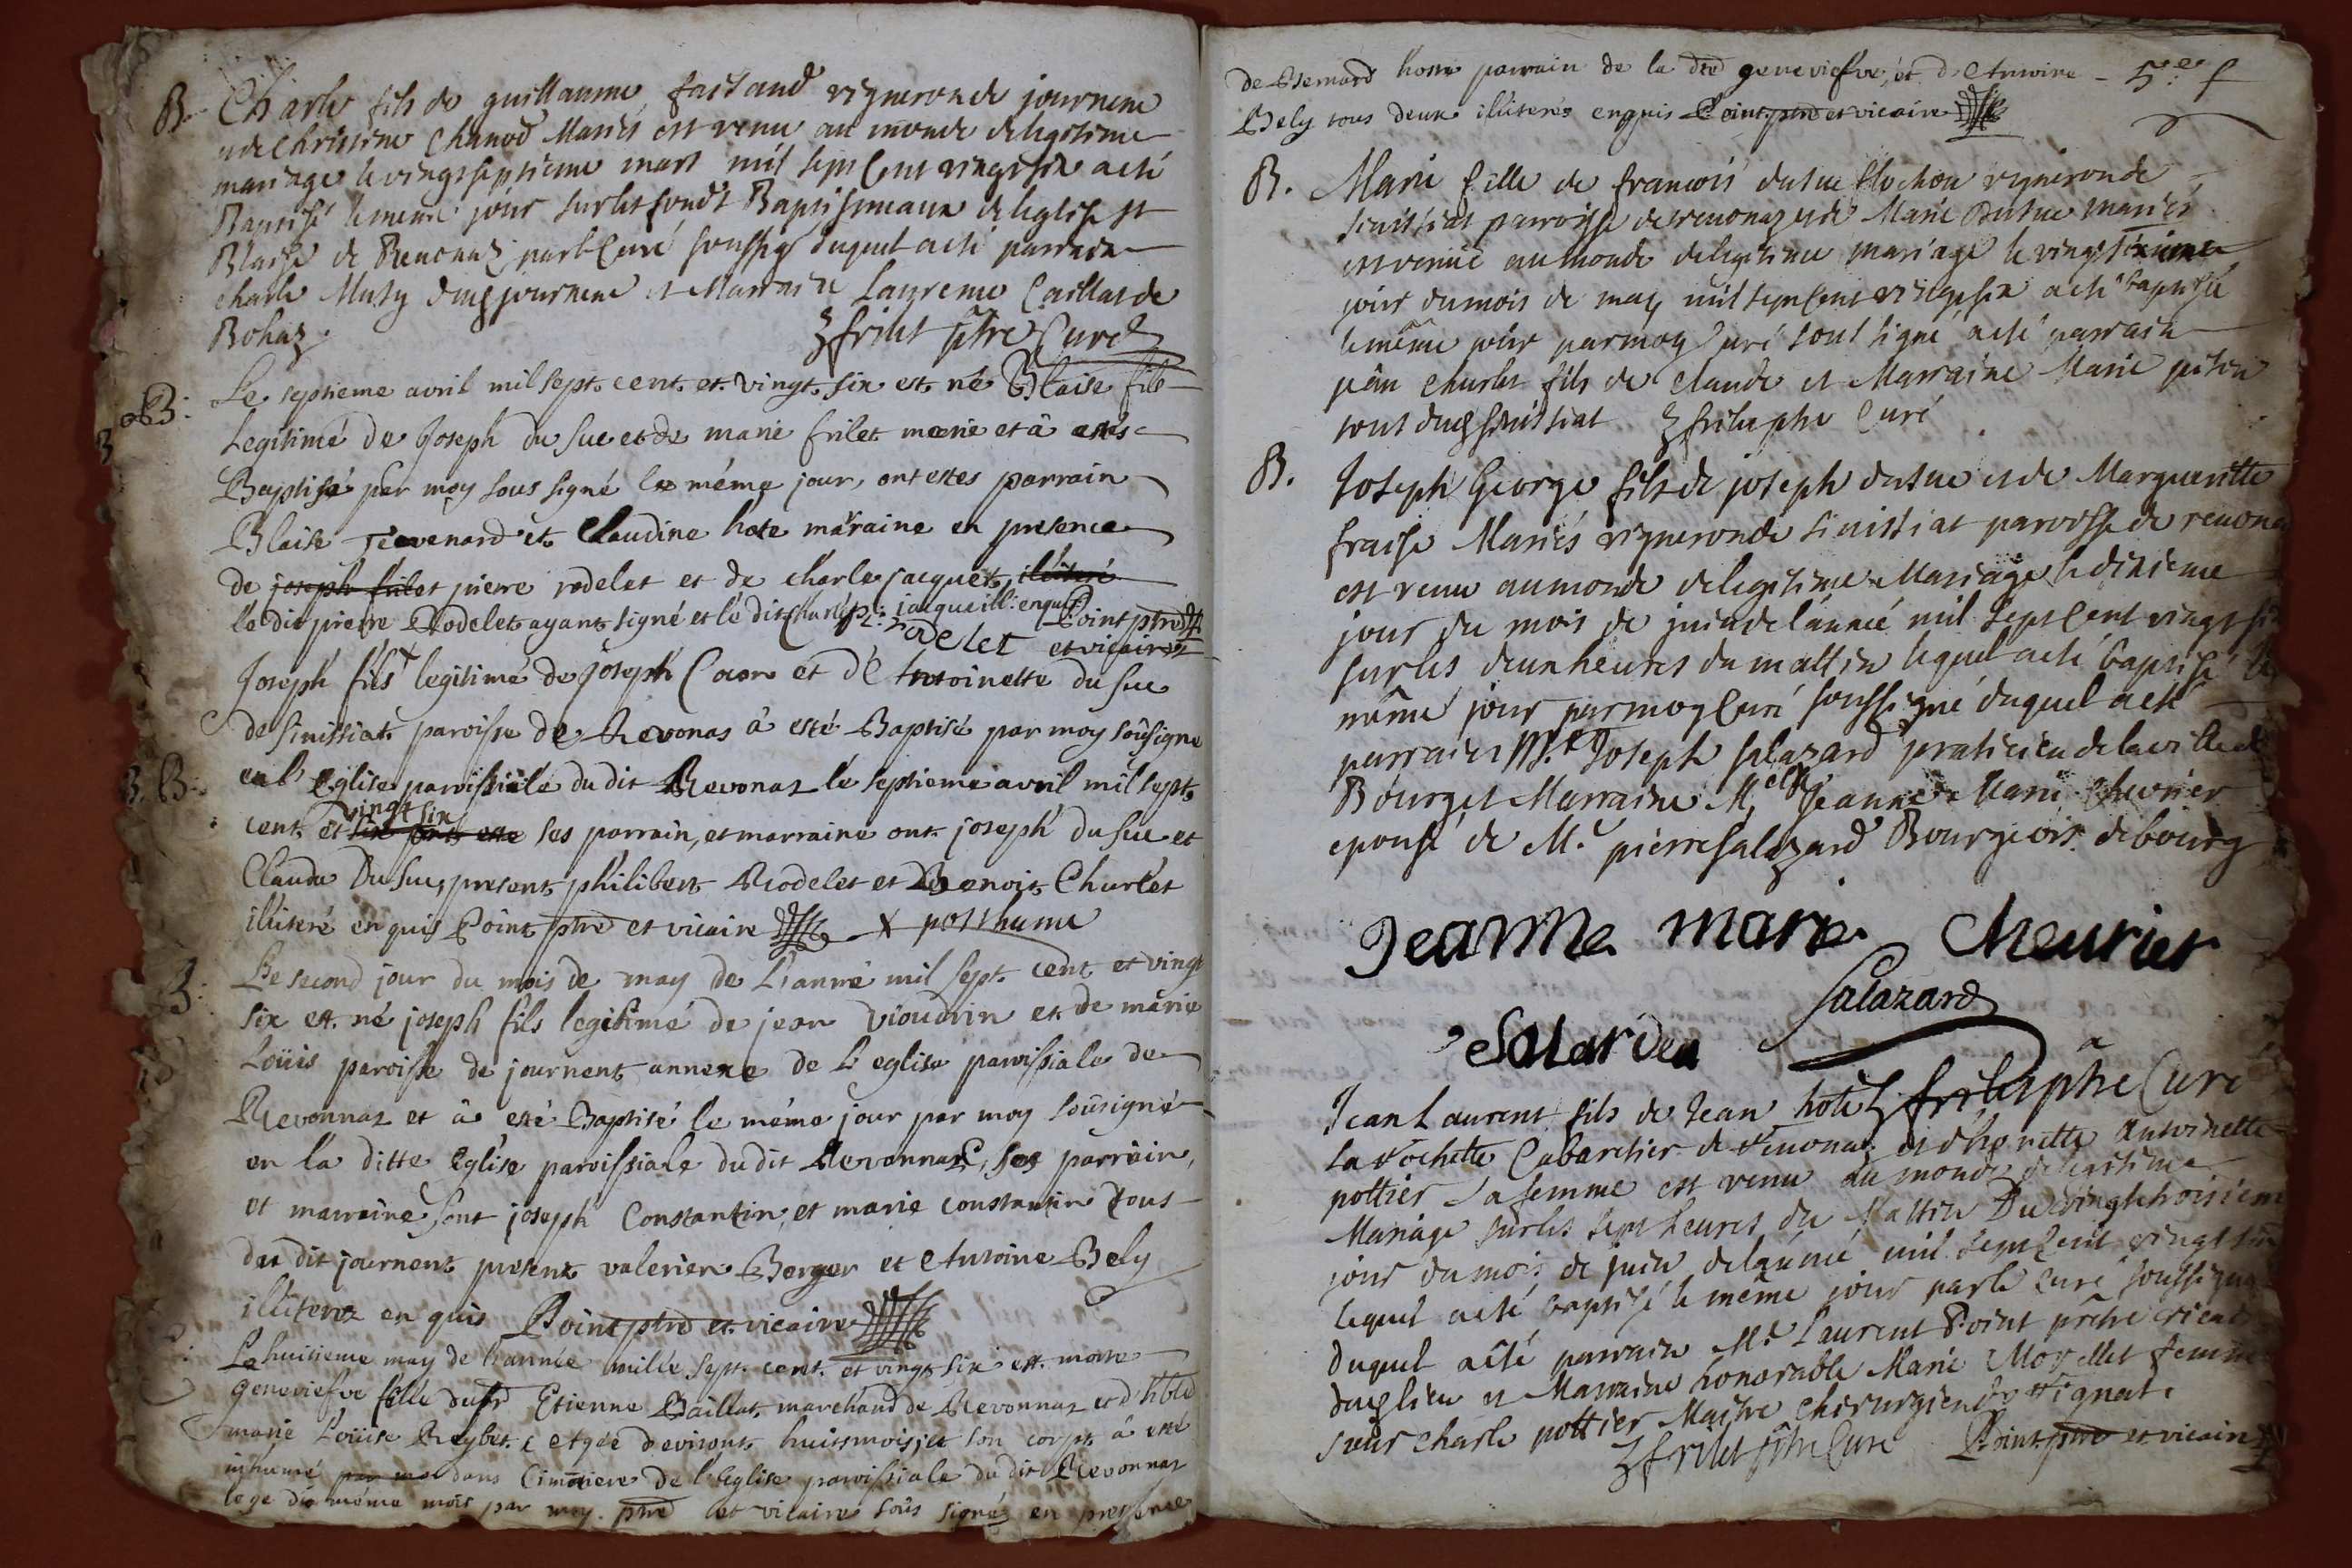 B. Charle fils de guillaume faisand vigneron de journene
et de Christine Chanod Mariés est venu au monde de legitime
mariage le vingtseptieme mars mil sept Cent vingtsix a esté
Baptisé le meme jour sur les fonds Baptismaux de leglise st
Blaise de Revonaz par le Curé soussigé duquel a esté parrain
charle Muty dud journene et Marraine Laurence Caillat de
Bohaz.
frilet ptre Curé
B: Le septieme avril mil sept. cent. et. vingt. six est. né Blaise fils
Legitimé de Joseph du Sue et de marie frilet marié et à estés
Baptisé par moy sous signé le méme jour, ont estes parrain
Blaise Tevenard et Claudine hote maraine en presence
de joseph frilet pierre rodelet et de charle jacquet, illiteré
lé dit pierre Rodelet ayant signé et lé dit Charle jacque ill: enquis Point ptre
rodelet et vicaire
Joseph fils + legitimé de joseph Coeur et d'Antoinette du Sue
de Sinissiat paroisse de Revonas à esté Baptisé par moy soûsigné
B. en l'Eglise paroissiale du dit Revonaz lé septieme avril mil sept.
vingt six
cent. et ses parrain, et marraine ont. joseph du Sue et
Claude Du Sue, present. philibert Rodelet et Benoit Charlet
illiteré enquis Point ptre et vicaire + posthume
B: Le second jour du mois de may de L'anné mil sept. cent et vingt
six est. né joseph fils legitimé de jean Vioudrin et de marie
Loüis paroisse de journent annexe de L'eglise paroissiale de
Revonnaz et à esté Baptisé le méme jour par moy soûsigné
en la ditte Eglise paroissiale du dit Revonnaz, ses parrain,
et marraine sont joseph Constantin, et marie constantin tous
du dit journent present valerien Berger et Antoine Bely
illiterez enquis Point ptre et. vicaire
Le huitieme may de l'année mille sept. cent. et vingt six est. morte
geneviefve fille du sr Etienne Baillat. marchand de Revonnaz et d'hble
marie Loüise Reybet. Agée d'environt huit mois, et son corps à esté
inhumé par moi dans Cimetiere de l'Eglise paroissiale du dit Revonnaz
le 9e du méme mois par moy. ptre et vicaire soûs signé en presence
de Bernard hoste parrain de la dte geneviefve, et d'Antoine
Bely tous deux illiterés enquis Point. ptre et vicaire
5e f
B. Marie fille de francois dusue Clochon vigneron de
sinissiat parroisse de revonaz et de Marie Dusue mariés
est venüe au monde de legitime mariage le vingtsixieme
jour du mois de may mil sept cent vingtsix a esté baptisée
le même jour par moy Curé sous signé a esté parrain
jean Charlet fils de Claude et Marraine Marie piton
tous dud sinissiat frilet ptre Curé
B. Joseph George fils de joseph dusue et de Margueritte
fraise Mariés vigneron de sinissiat paroisse de revona
est venu au monde de legitime Mariage le dixieme
jour du mois de juin de lannée mil sept Cent vingt six
sur les deux heures du mattin lequel a esté baptisé le
même jour par moy Curé soussigné duquel a esté
parrain Mr Joseph Salazard praticien de la ville de
Bourg et Marraine Melle Jeanne Marie Chevrier
epouse de Mr pierre Salazard Bourgeois de bourg
Jeanne marie Cheurier
Salazard
frilet ptre Curé
Jean Laurent fils de Jean hote
La rochette Cabaretier de Revonas et d'honette Antoinette
pottier sa femme est venu au monde de legitime
Mariage sur les sept heures du Mattin Du vingttroisiem
jour du mois de juin de lannée mil sept Cent vingt six
lequel a esté baptisé le même jour par le curé soussigné
duquel a été parrain Mr Laurent Point prêtre vicaire
dud lieu et Marraine honorable Marie Morellet femme
sieur Charle pottier Maitre chirurgien de Rignat.
frilet ptre Curé Point. ptre et. vicaire